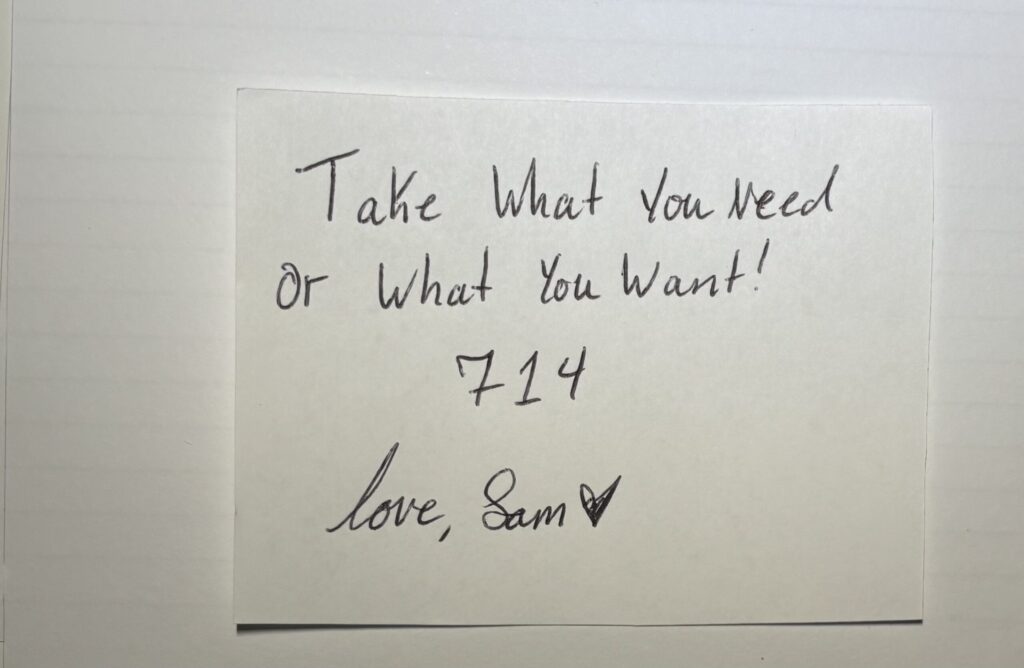 Take What You Need
Or What You Want!
714
love, Sam ♥